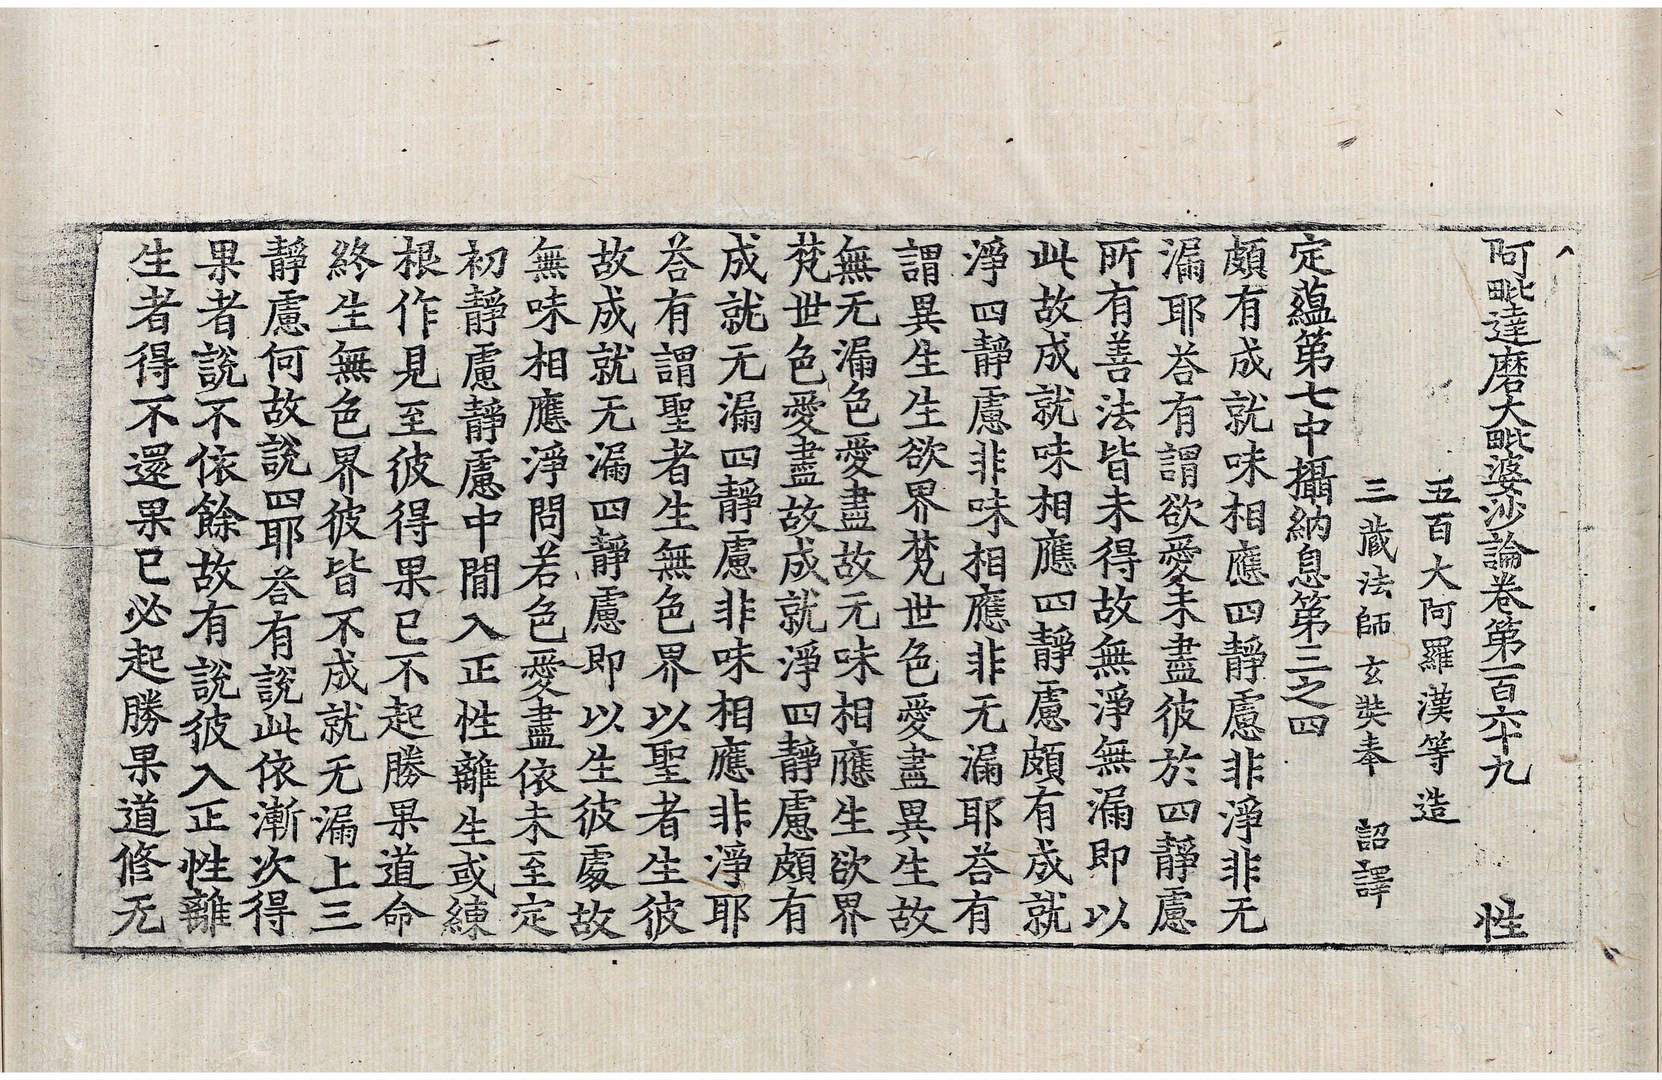 阿毗達磨大毗婆沙論卷第一百六十九　性
五百大阿羅漢等造
三藏法師玄奘奉　詔譯
定蘊第七中攝納息第三之四
頗有成就味相應四靜慮非淨非无
漏耶荅有謂欲愛未盡彼於四靜慮
所有善法皆未得故無淨無漏即以
此故成就味相應四靜慮頗有成就
淨四靜慮非味相應非无漏耶荅有
謂異生生欲界梵世色愛盡異生故
無无漏色愛盡故无味相應生欲界
梵世色愛盡故成就淨四靜慮頗有
成就无漏四靜慮非味相應非淨耶
荅有謂聖者生無色界以聖者生彼
故成就无漏四靜慮即以生彼處故
無味相應淨問若色愛盡依未至定
初靜慮靜慮中間入正性離生或練
根作見至彼得果已不起勝果道命
終生無色界彼皆不成就无漏上三
靜慮何故說四耶荅有說此依漸次得
果者說不依餘故有說彼入正性離
生者得不還果已必起勝果道修无